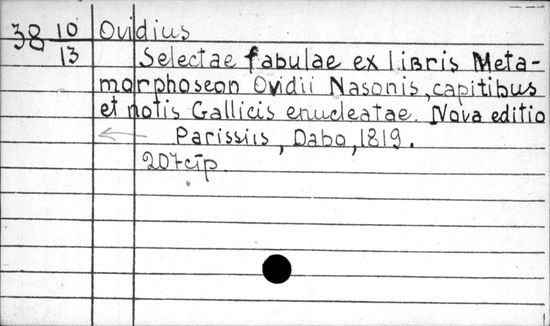 38 10/13 Ovidius
Selectae fabulae ex libris Meta-
morphoseon Ovidii Nasonis, capitibus
et notis Gallicis enucleatae. Nova editio
Parissiis, Dabo, 1819.
207 стр.